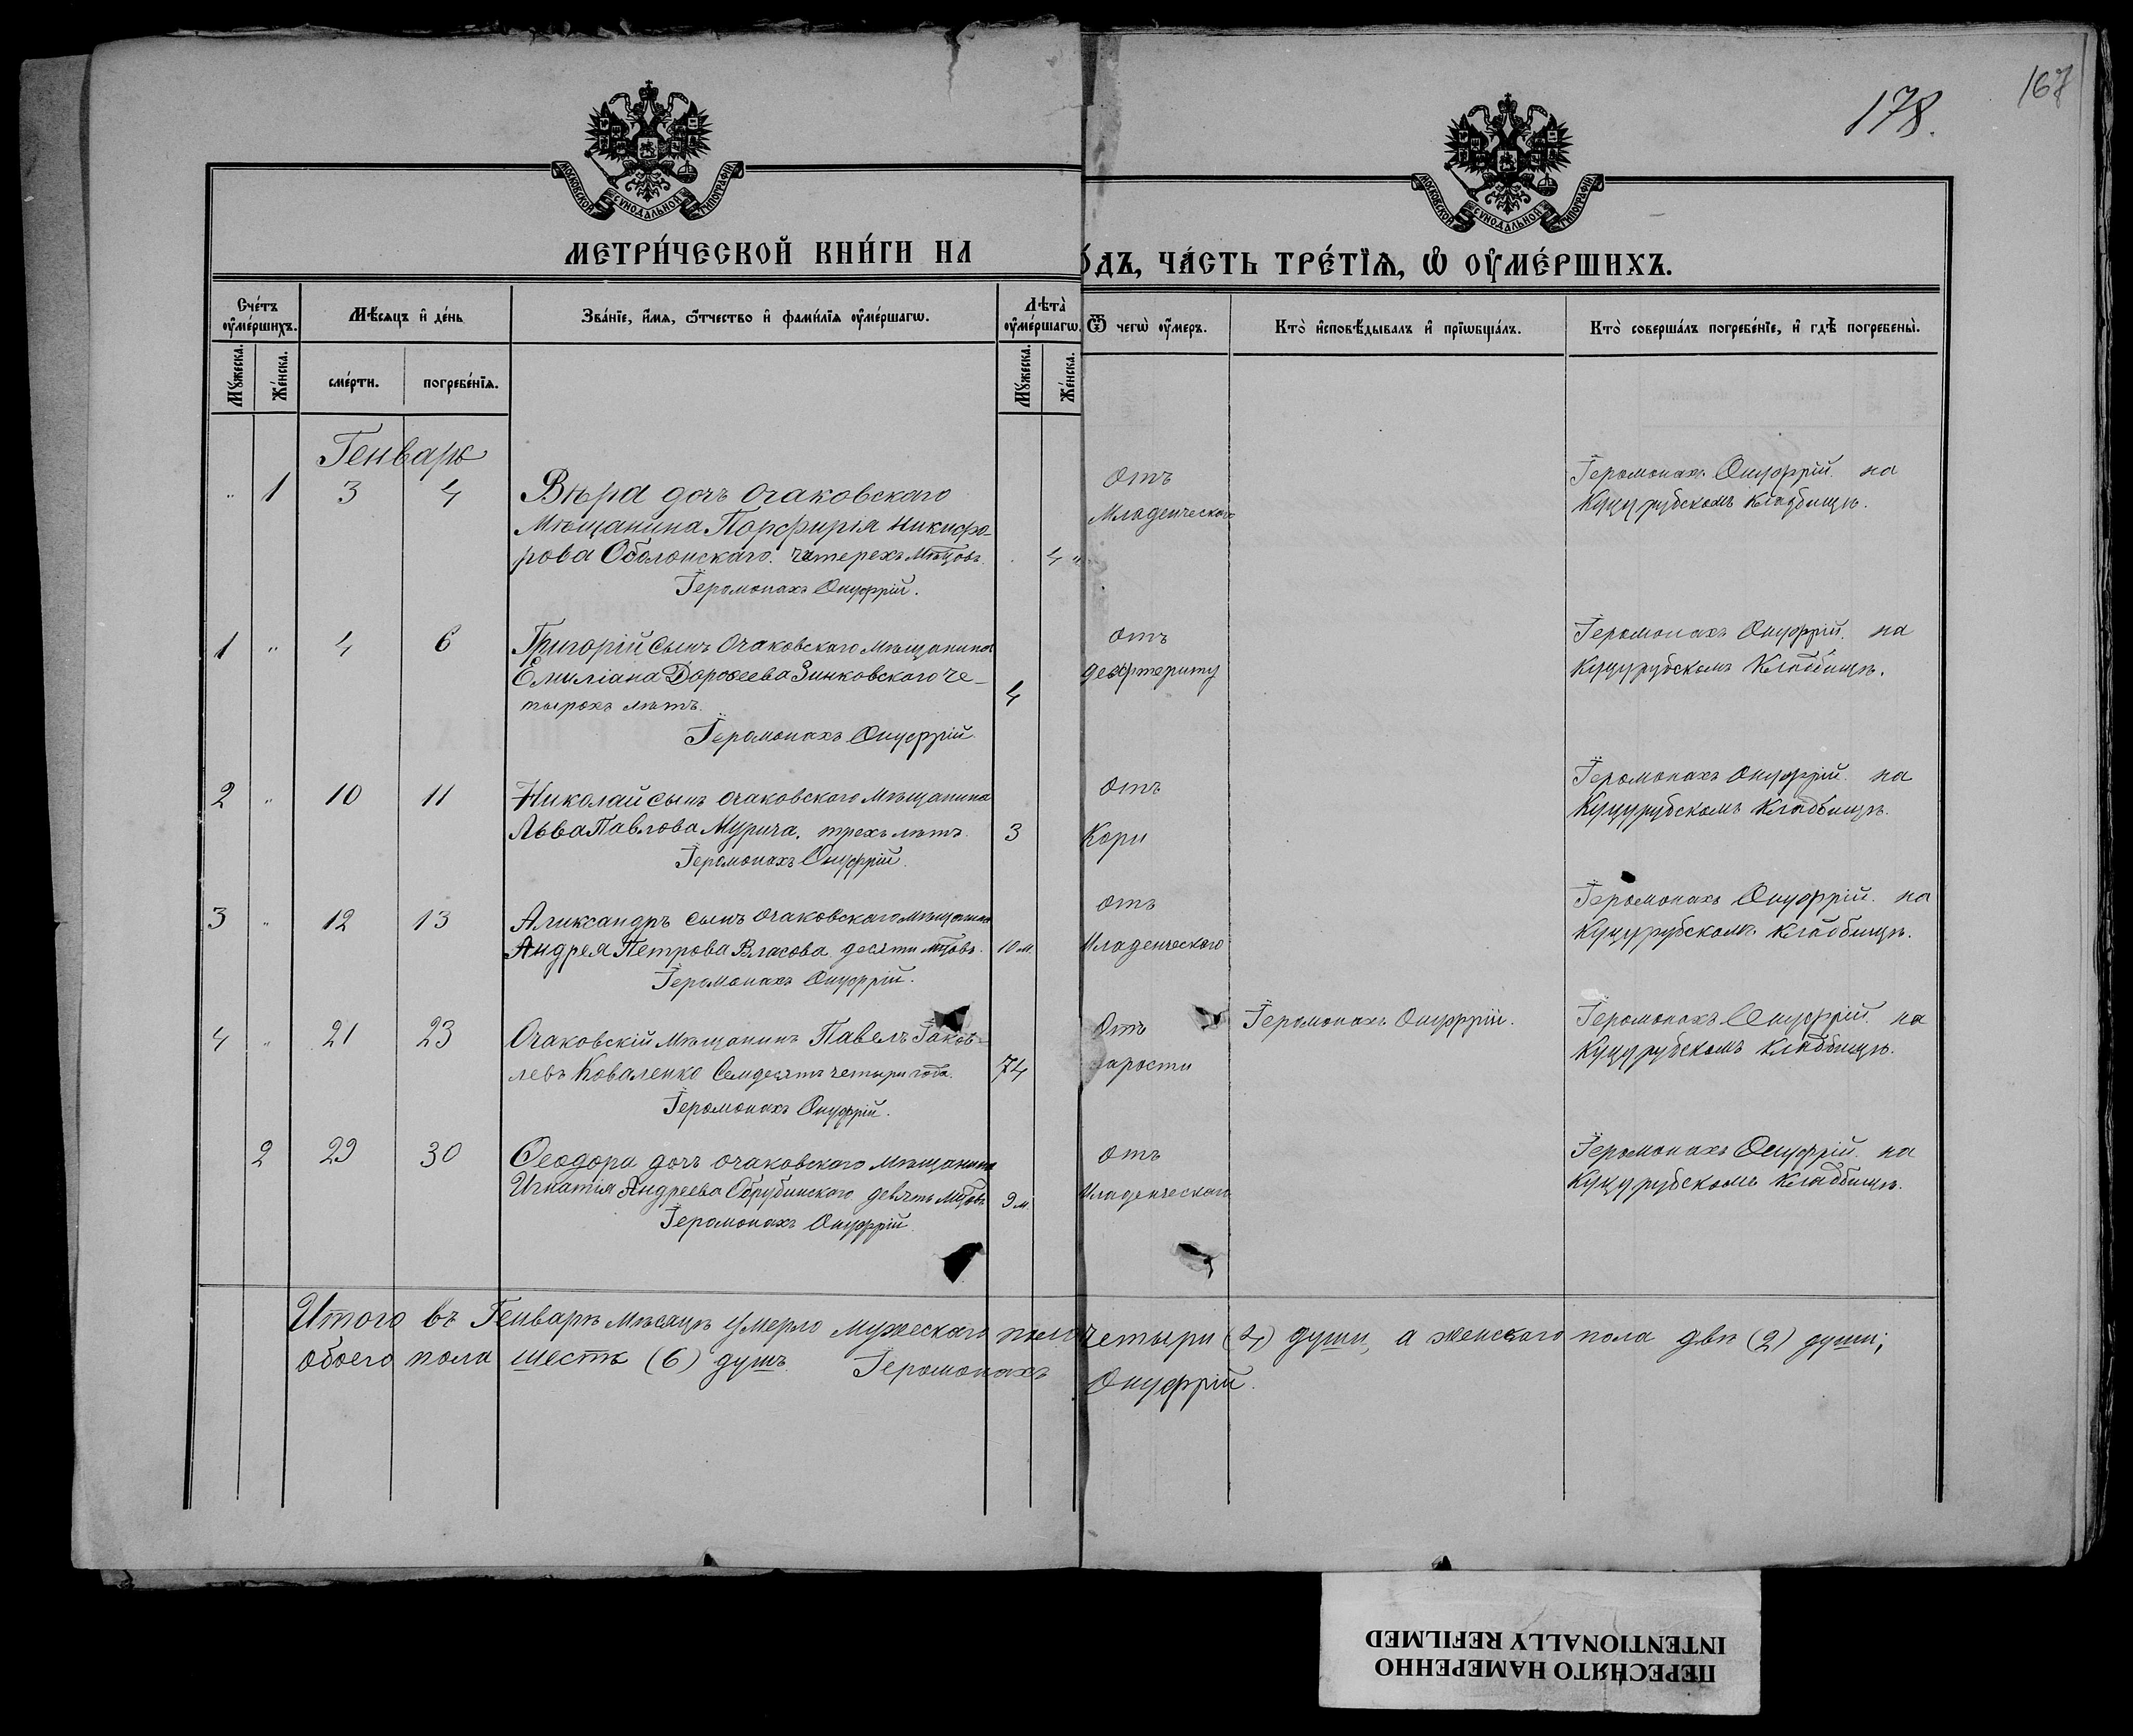 178.
167
МОСКОВСКОЙ СѴНОДАЛЬНОЙ ТИПОГРАФІИ
МОСКОВСКОЙ СѴНОДАЛЬНОЙ ТИПОГРАФІИ
МЕТРИ́ЧЕСКОЙ КНИ́ГИ НА
О́ДЪ, ЧА́СТЬ ТРЕ́ТІѦ, Ѡ҆ ОУ҆МЕ́РШИХЪ.
Сче́тъ оу҆ме́ршихъ.
Мѣ́сяцъ и҆ де́нь
Зва́нїе, и҆́мѧ, ѻ҆́тчество и҆ фами́лїѧ оу҆ме́ршагѡ.
Лѣта̀ оу҆ме́ршагѡ.
Ѿ чегѡ̀ оу҆́меръ.
Кто̀ и҆сповѣ́дывалъ и҆ прїѡбща́лъ.
Кто̀ соверша́лъ погребе́нїе, и҆ гдѣ̀ погребены̀.
Мꙋ́жеска.
Же́нска.
сме́рти.
погребе́нїѧ.
Мꙋ́жеска.
Же́нска.
Генварь
" 1 3 4
Вѣра дочь Очаковскаго
Мѣщанина Порфирія Никифо-
рова Оболонскаго. Чатерехъ Мѣсцовъ.
4
Іеромонахъ Онуфрій.
отъ
Младенческаго
Іеромонахъ Онуфрій на
Куцурубскомъ кладбищѣ.
1 " 4 6
Григорій сынъ Очаковскаго мѣщанина
Емиліана Дорофеева Зинковского че-
тырохъ лѣтъ.
4
Іеромонахъ Онуфрій.
отъ
дефтериту
Іеромонахъ Онуфрій. на
Куцурубскомъ Кладбищѣ.
2 " 10 11
Николай сынъ очаковского мѣщанина
Льва Павлова Мурича, трехъ лѣтъ.
3
Іеромонахъ Онуфрій.
отъ
Кори
Іеромонахъ Онуфрій. на
Куцурубскомъ Кладбищѣ.
3 " 12 13
Аликсандръ сынъ очаковскаго мѣщанина
Андрея Петрова Власова десяти мѣсцовъ.
10 м.
Іеромонахъ Онуфрій.
отъ
Младенческаго
Іеромонахъ Онуфрій. на
Куцурубскомъ кладбищѣ.
4 " 21 23
Очаковскій мѣщанинъ Павелъ Іаков-
левъ Коваленко Семдесятъ четыри года.
74
Іеромонахъ Онуфрій.
Отъ
тарости
Іеромонахъ Онуфрій.
Іеромонахъ Онуфрій. на
Куцурубскомъ кладбищѣ.
2 29 30
Ѳеодора дочь очаковскаго мѣщанина
Игнатія Андреева Обрубинского девять Мѣсцовъ
9 м.
Іеромонахъ Онуфрій.
отъ
Младенческаго
Іеромонахъ Онуфрій. на
Куцурубскомъ кладбищѣ.
Итого въ Генварѣ Мѣсяцѣ умерло мужескаго пола четыри (4) души, а женскаго пола двѣ (2) души;
обоего пола шесть (6) душъ. Іеромонахъ Онуфрій.
ПЕРЕСНЯТО НАМЕРЕННО
INTENTIONALLY REFILMED